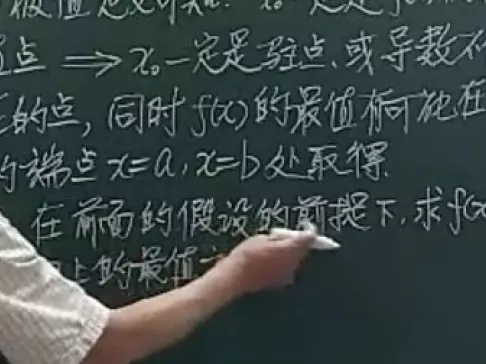 极值定义可知: x₀一定是f(
点 ⟹ x₀一定是驻点、或导数不
的点, 同时 f(x)的最值有可能在
的端点 x=a, x=b 处取得.
在前面的假设的前提下, 求f(x
上的最值